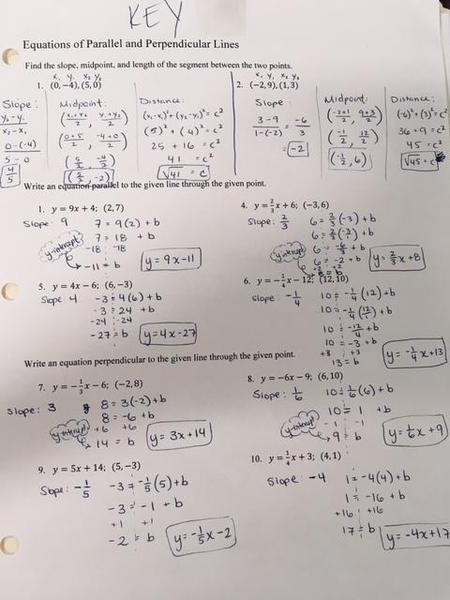 KEY
Equations of Parallel and Perpendicular Lines
Find the slope, midpoint, and length of the segment between the two points.
x₁ y₁ x₂ y₂
1. (0,−4),(5,0)
Slope:
y₂-y₁
x₂-x₁
0-(-4)
5-0
4/5
Midpoint:
(x₁+x₂/2, y₁+y₂/2)
(0+5/2, -4+0/2)
(5/2, -4/2)
(5/2, -2)
Distance:
(x₂-x₁)²+(y₂-y₁)²=c²
(5)²+(4)²=c²
25+16=c²
41=c²
√41=c
x₁ y₁ x₂ y₂
2. (−2,9),(1,3)
Slope:
3-9/1-(-2) = -6/3
=-2
Midpoint:
(-2+1/2, 9+3/2)
(-1/2, 12/2)
(-1/2, 6)
Distance:
(-6)²+(3)²=c²
36+9=c²
45=c²
√45=c
Write an equation parallel to the given line through the given point.
1. y = 9x + 4; (2,7)
Slope: 9
7=9(2)+b
7=18+b
-18 -18
y-intercept
-11=b
y=9x-11
4. y = 2/3x + 6; (−3,6)
Slope: 2/3
6=2/3(-3)+b
6=2/3(-3/1)+b
6=-6/3+b
6=-2+b
y-intercept
y=2/3x+8
5. y = 4x − 6; (6,−3)
Slope 4
-3=4(6)+b
-3=24+b
-24 -24
-27=b
y=4x-27
6. y = −1/4x − 12; (12,10)
slope -1/4
10=-1/4(12)+b
10=-1/4(12/1)+b
10=-12/4+b
10=-3+b
+3 +3
13=b
y=-1/4x+13
Write an equation perpendicular to the given line through the given point.
7. y = −1/3x − 6; (−2,8)
Slope: 3
8=3(-2)+b
8=-6+b
+6 +6
y-intercept
14=b
y=3x+14
8. y = −6x − 9; (6,10)
Slope: 1/6
10=1/6(6)+b
10=1+b
-1 -1
y-intercept
9=b
y=1/6x+9
9. y = 5x + 14; (5,−3)
Slope: -1/5
-3=-1/5(5)+b
-3=-1+b
+1 +1
-2=b
y=-1/5x-2
10. y = 1/4x + 3; (4,1)
Slope: -4
1=-4(4)+b
1=-16+b
+16 +16
17=b
y=-4x+17